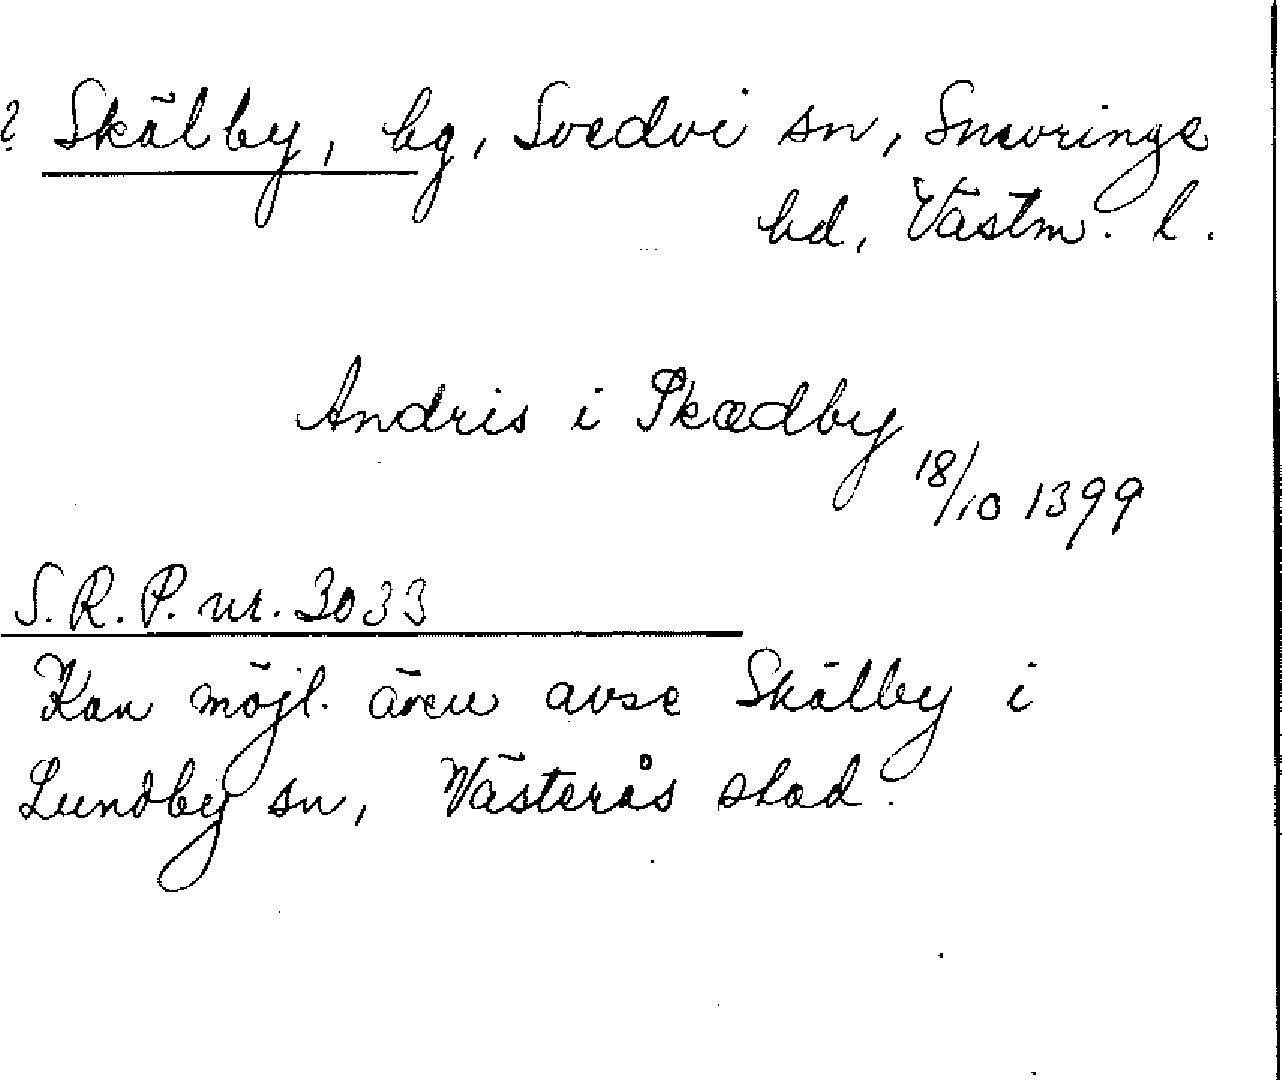 ? Skälby, bg, Svedvi sn, Snevringe
hd, Västm. l.
Andris i Skædby
18/10 1399
S.R.P. nr. 3033
Kan möjl. även avse Skälby i
Lundby sn, Västerås stad.